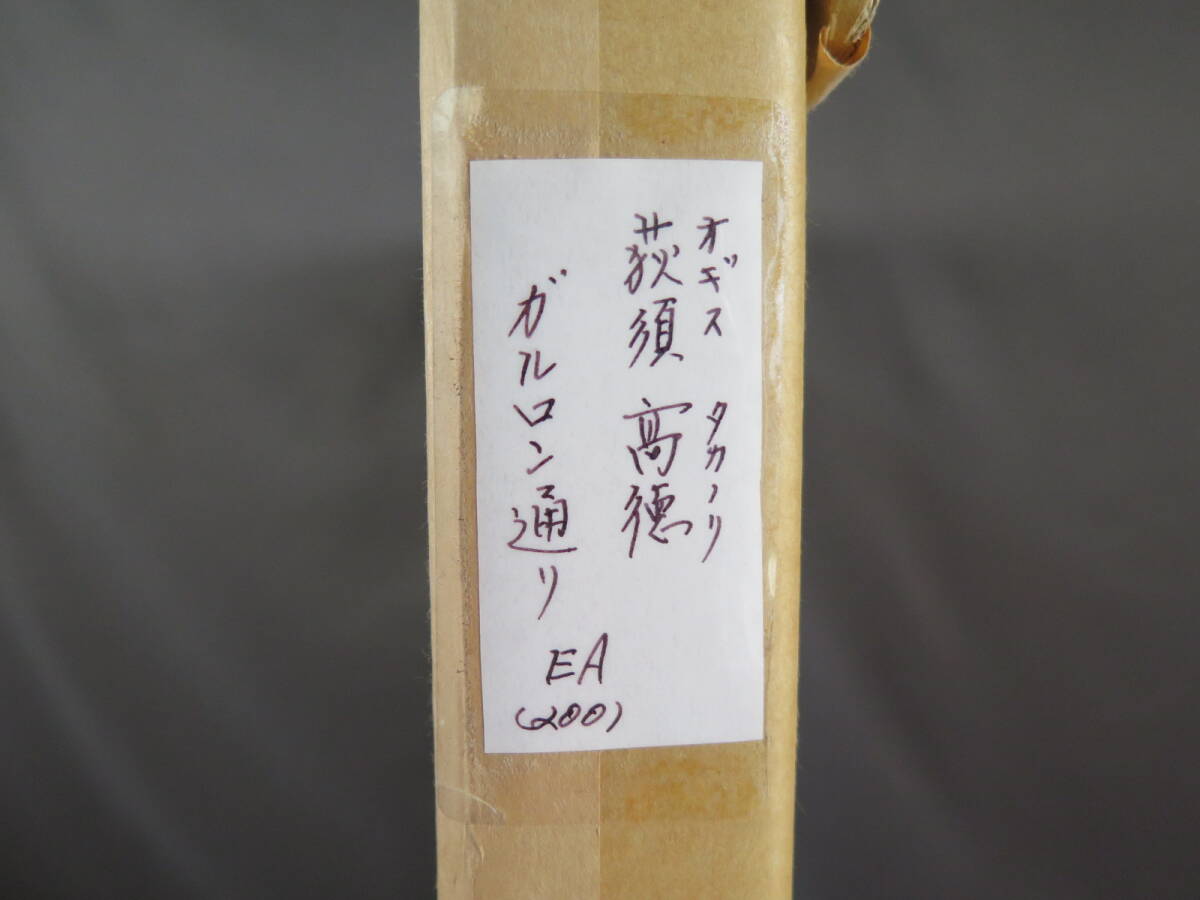 オギス タカノリ
荻須 高徳
ガルロン通り
EA
(200)